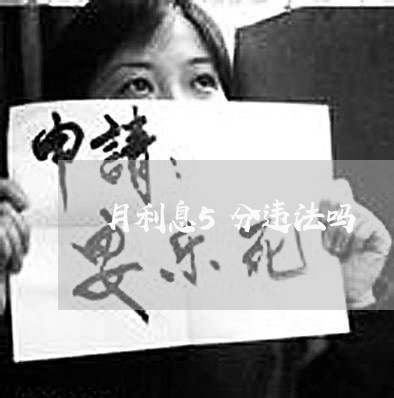 申請：
月利息5分违法吗
安乐死